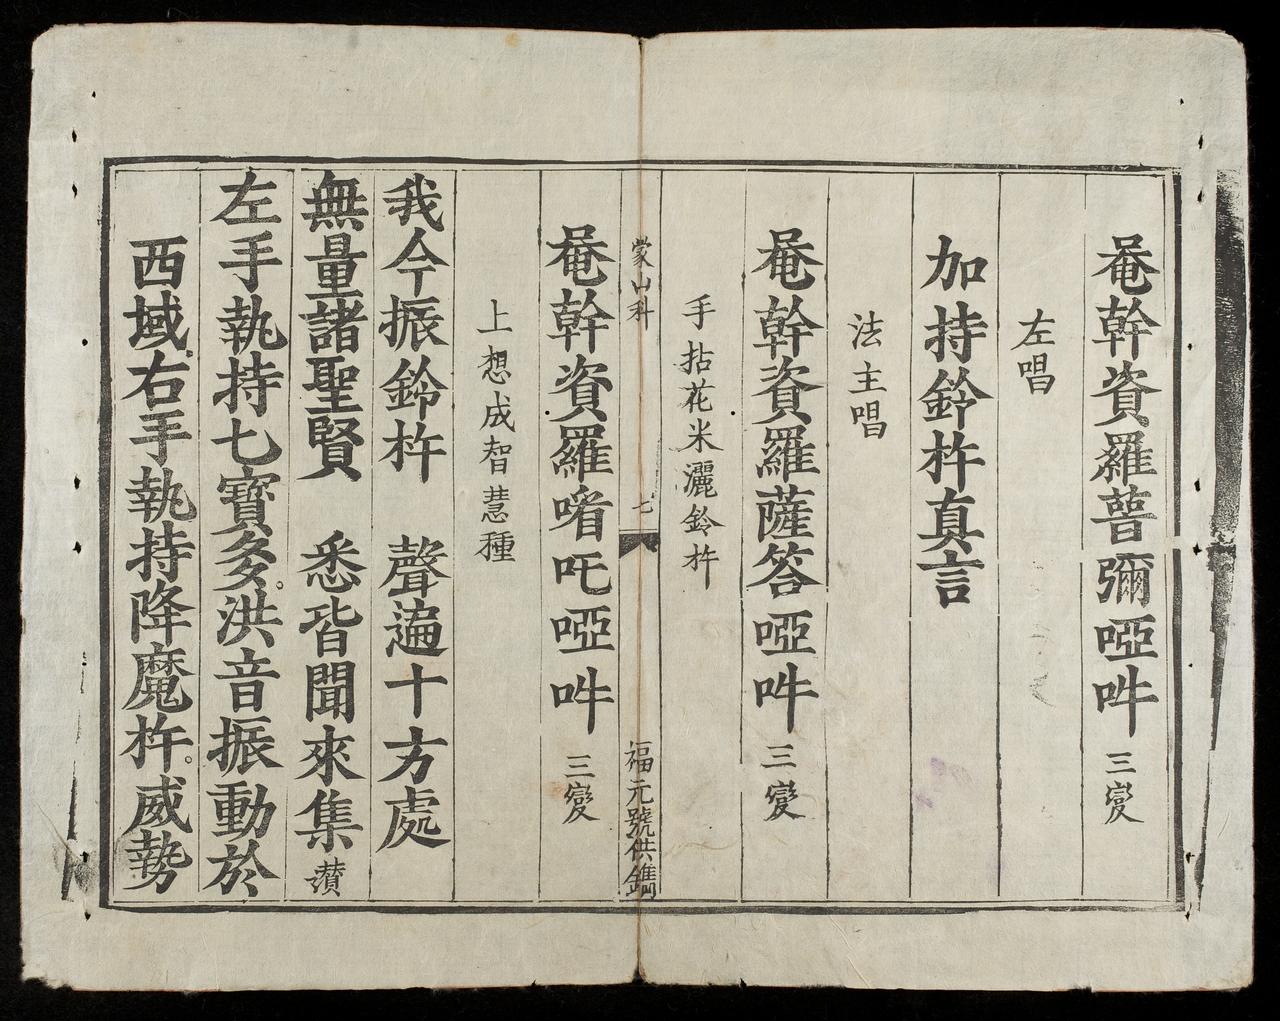 羄幹資羅菩彌啞吽 三變
左唱
加持鈴杵真言
法主唱
羄幹資羅薩答啞吽 三變
手拈花米灑鈴杵
蒙山科 七 福元號供鐫
羄幹資羅㗖吒啞吽 三變
上想成智慧種
我今振鈴杵 聲遍十方處
無量諸聖賢 悉皆聞來集 讃
左手執持七寳多。洪音振動於
西域。右手執持降魔杵。威勢